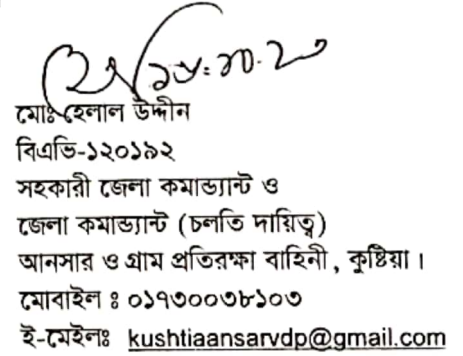 মোঃ হেলাল উদ্দীন
বিএভি-১২০১৯২
সহকারী জেলা কমান্ড্যান্ট ও
জেলা কমান্ড্যান্ট (চলতি দায়িত্ব)
আনসার ও গ্রাম প্রতিরক্ষা বাহিনী , কুষ্টিয়া ।
মোবাইল ঃ ০১৭৩০০৩৮১০৩
ই-মেইলঃ kushtiaansarvdp@gmail.com